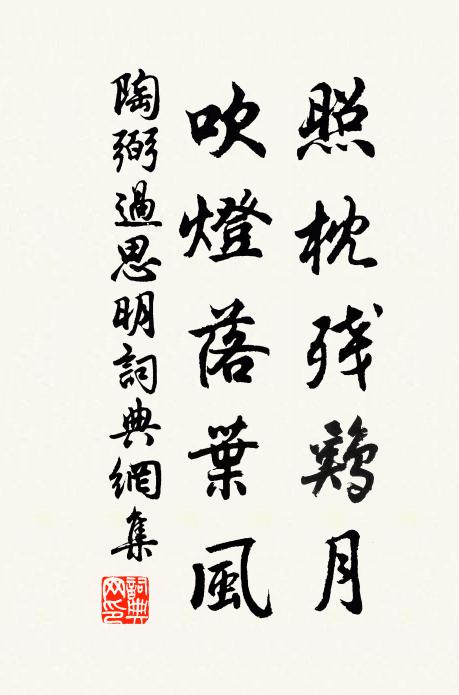 照枕残鷄月
吹燈落葉風
陶弼過思明詞典網集
詞典网印